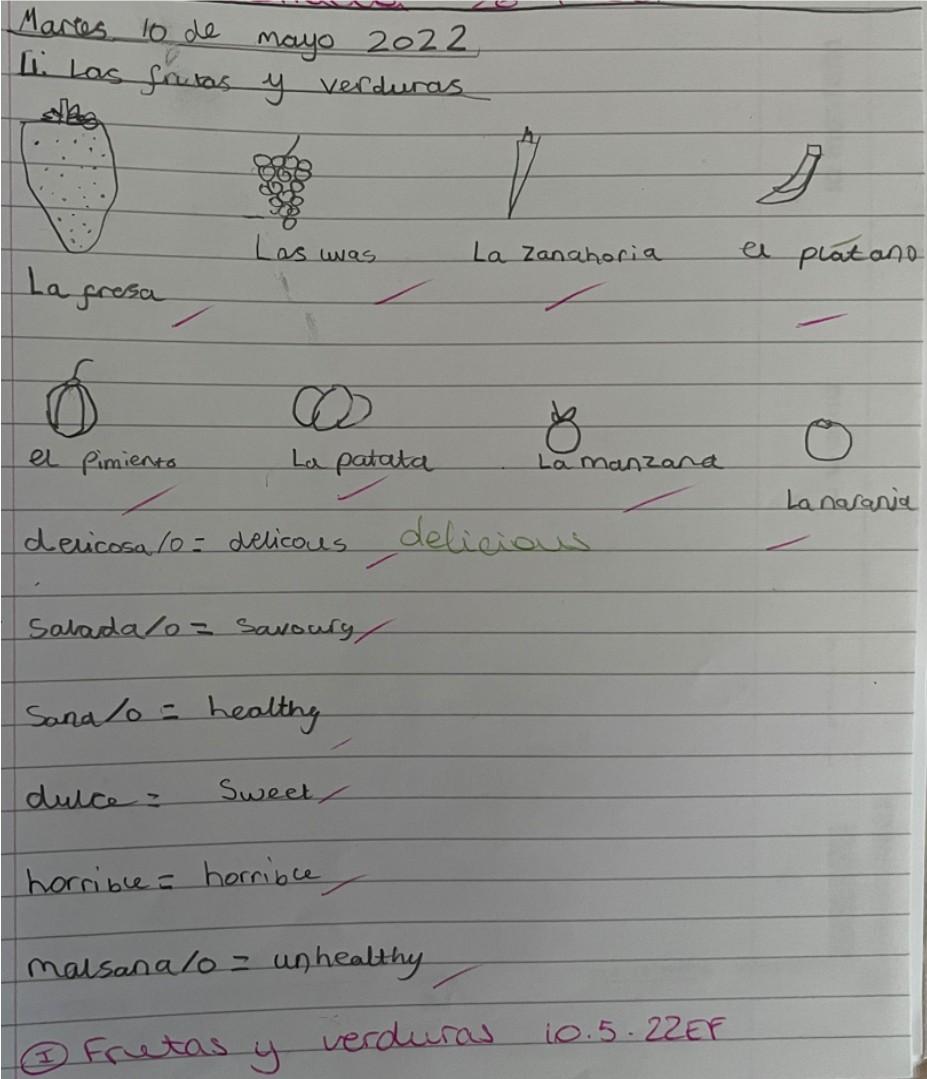 Martes 10 de mayo 2022
LI. Las frutas y verduras
Las uvas La zanahoria el plátano
La fresa
el Pimiento La patata La manzana
La naranja
delicosa/o = delicous delicious
Salada/o = Savoury
Sana/o = healthy
dulce = Sweet
horrible = horrible
malsana/o = unhealthy
I Frutas y verduras 10.5.22EF